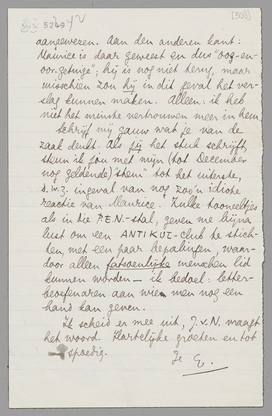 aangewezen. Aan den anderen kant:
Maurice is daar geweest en dus "oog-en-
oor-getuige"; hij is nog niet terug, maar
misschien zou hij in dit geval het ver-
slag kunnen maken. Alleen: ik heb
niet het minste vertrouwen meer in hem.
Schrijf mij gauw wat je van de
zaak denkt. Als jij het stuk schrijft,
steun ik jou met mijn (tot December
nog geldende) "stem" tot het uiterste,
d.w.z. ingeval van nog zoo'n idiote
reactie van Maurice. Zulke tooneeltjes
als in die P.E.N.-stal, geven me bijna
lust om een ANTIKUL-club te stich-
ten, met een paar bepalingen, waar-
door alleen fatsoenlijke menschen lid
kunnen worden – ik bedoel: letter-
beoefenaren aan wien men nog een
hand kan geven.
Ik scheid er mee uit, J.v.N. maagt
het woord. Hartelijke groeten en tot
spoedig.
Je E.